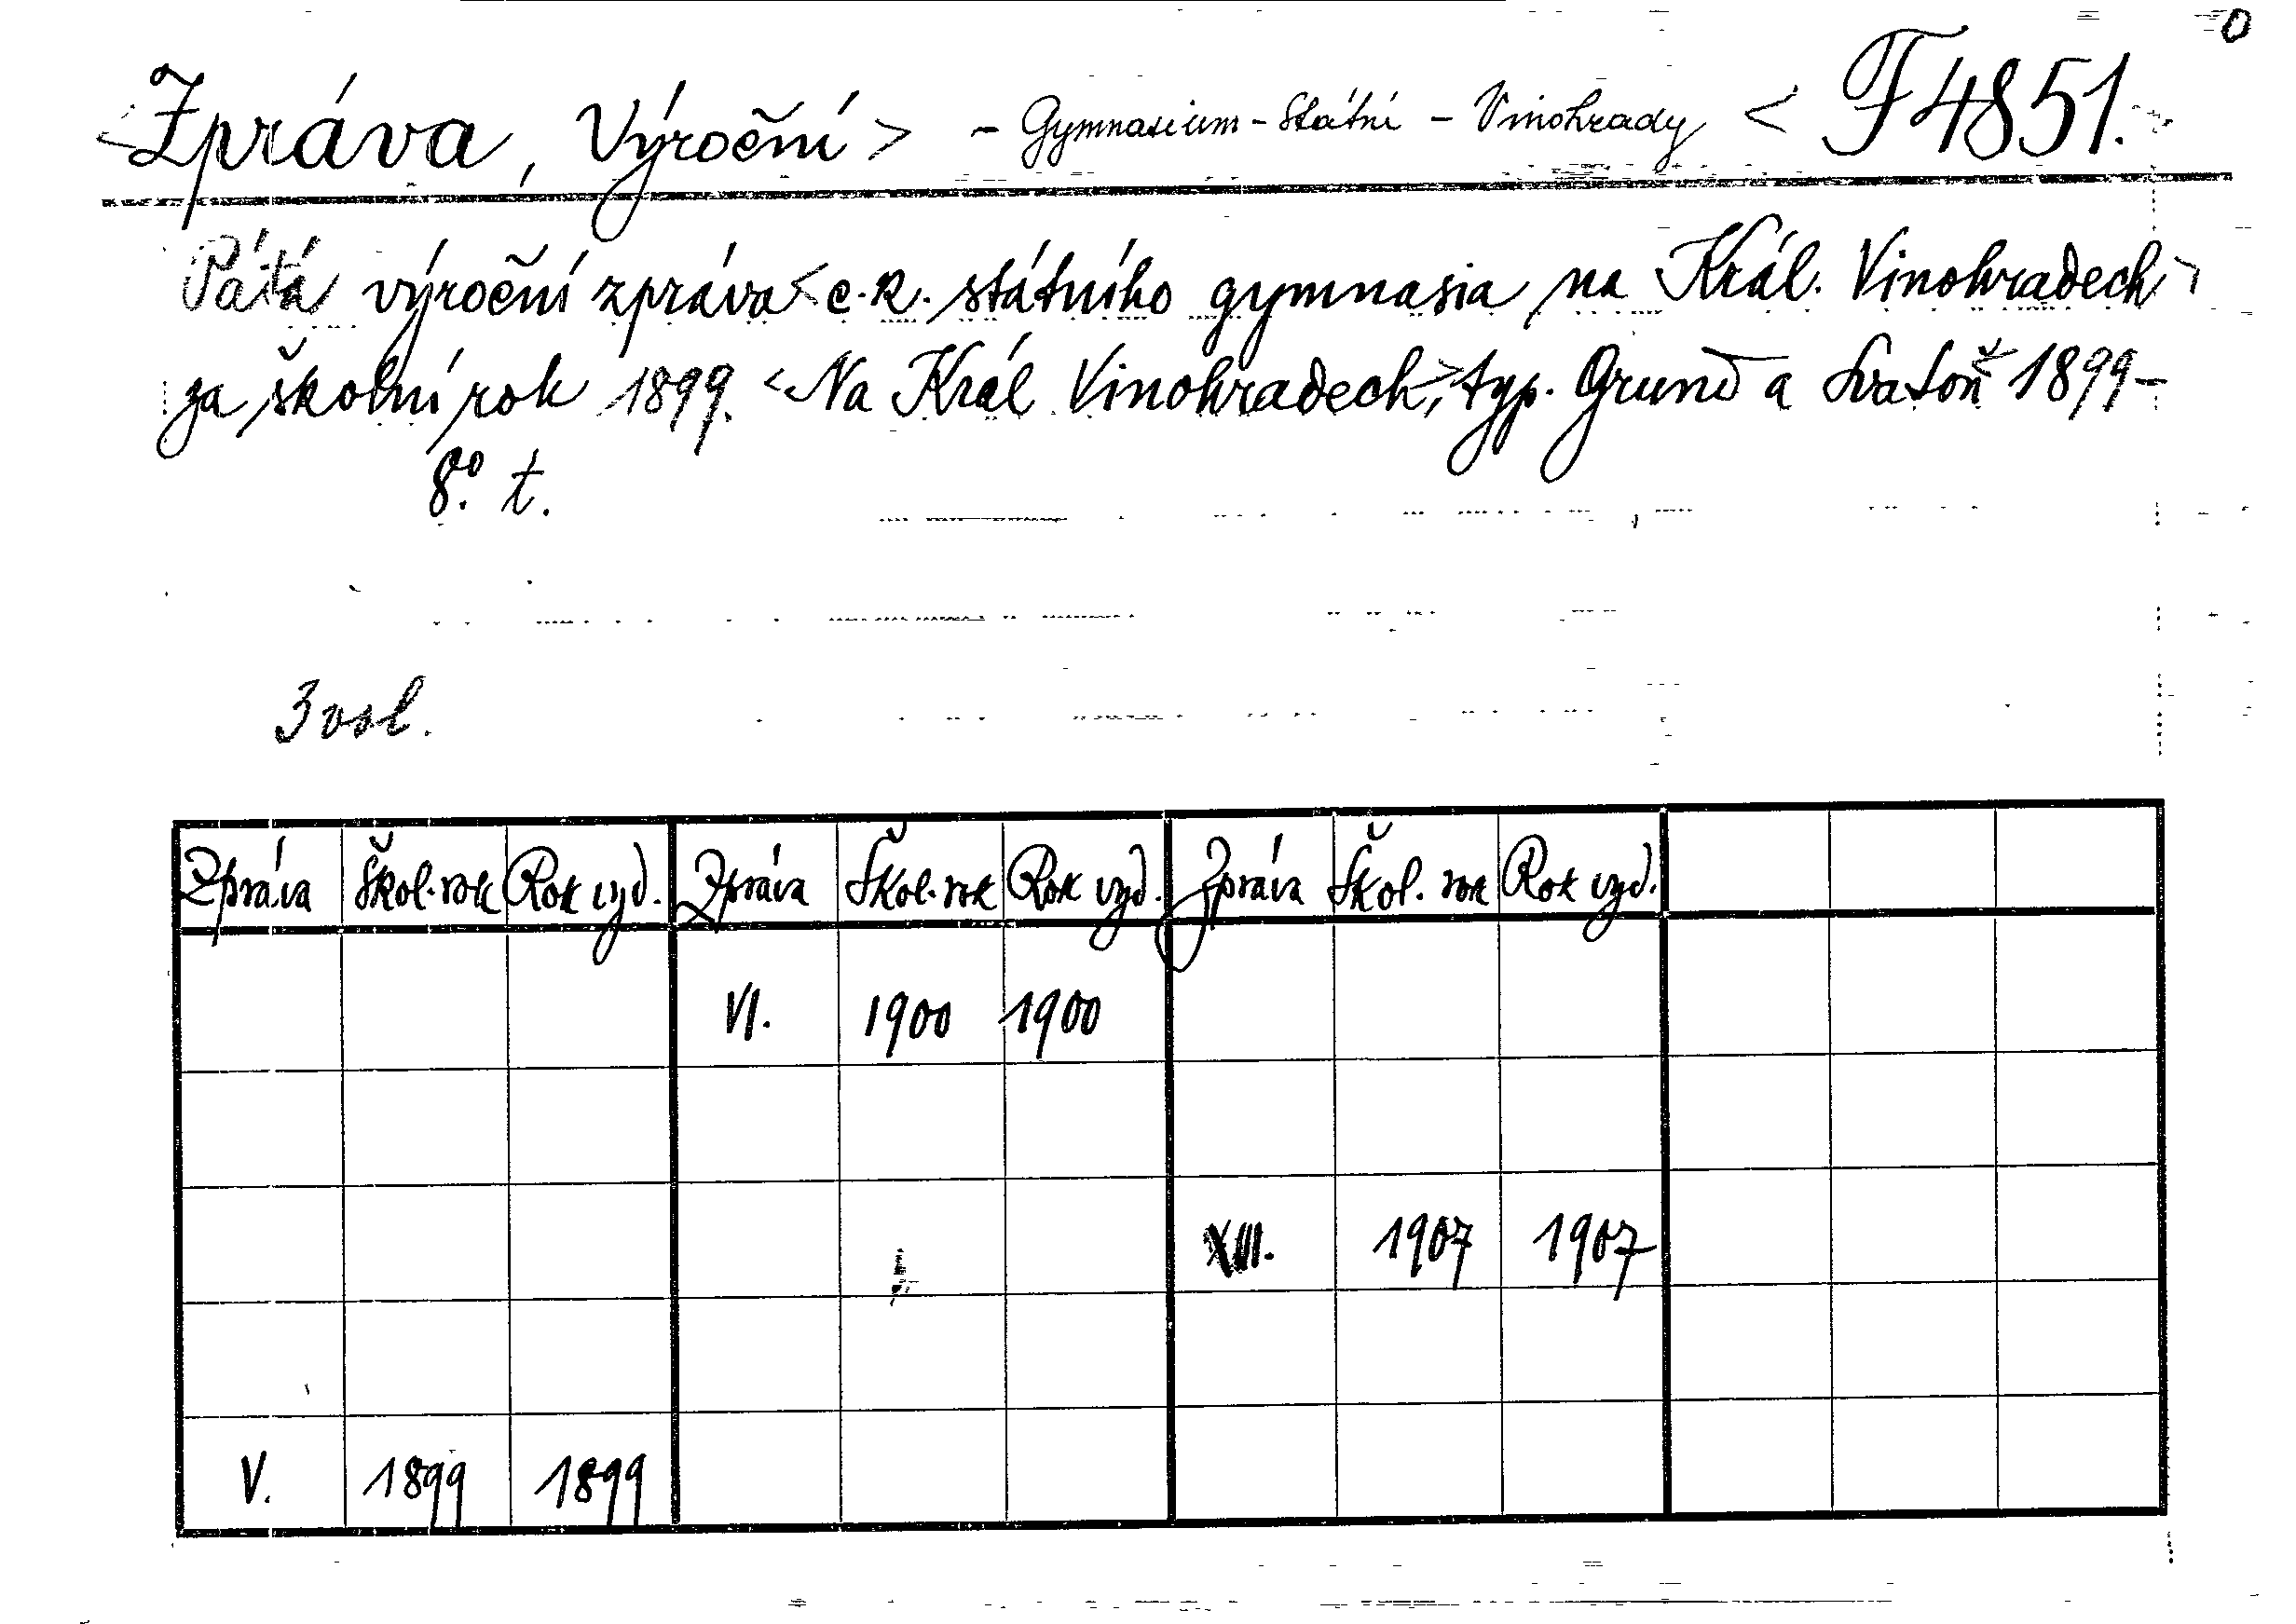 O
<Zpráva, Výroční> - Gymnasium - Státní - Vinohrady < F 4851.
Pátá výroční zpráva < c. k. státního gymnasia na Král. Vinohradech >
za školní rok 1899. <Na Král Vinohradech,> typ. Grund a Svatoň 1899-
8.° t.
3 vol.
Zpráva Škol. rok Rok vyd. Zpráva Škol. rok Rok vyd. Zpráva Škol. rok Rok vyd.
VI. 1900 1900
1907 1907
V. 1899 1899